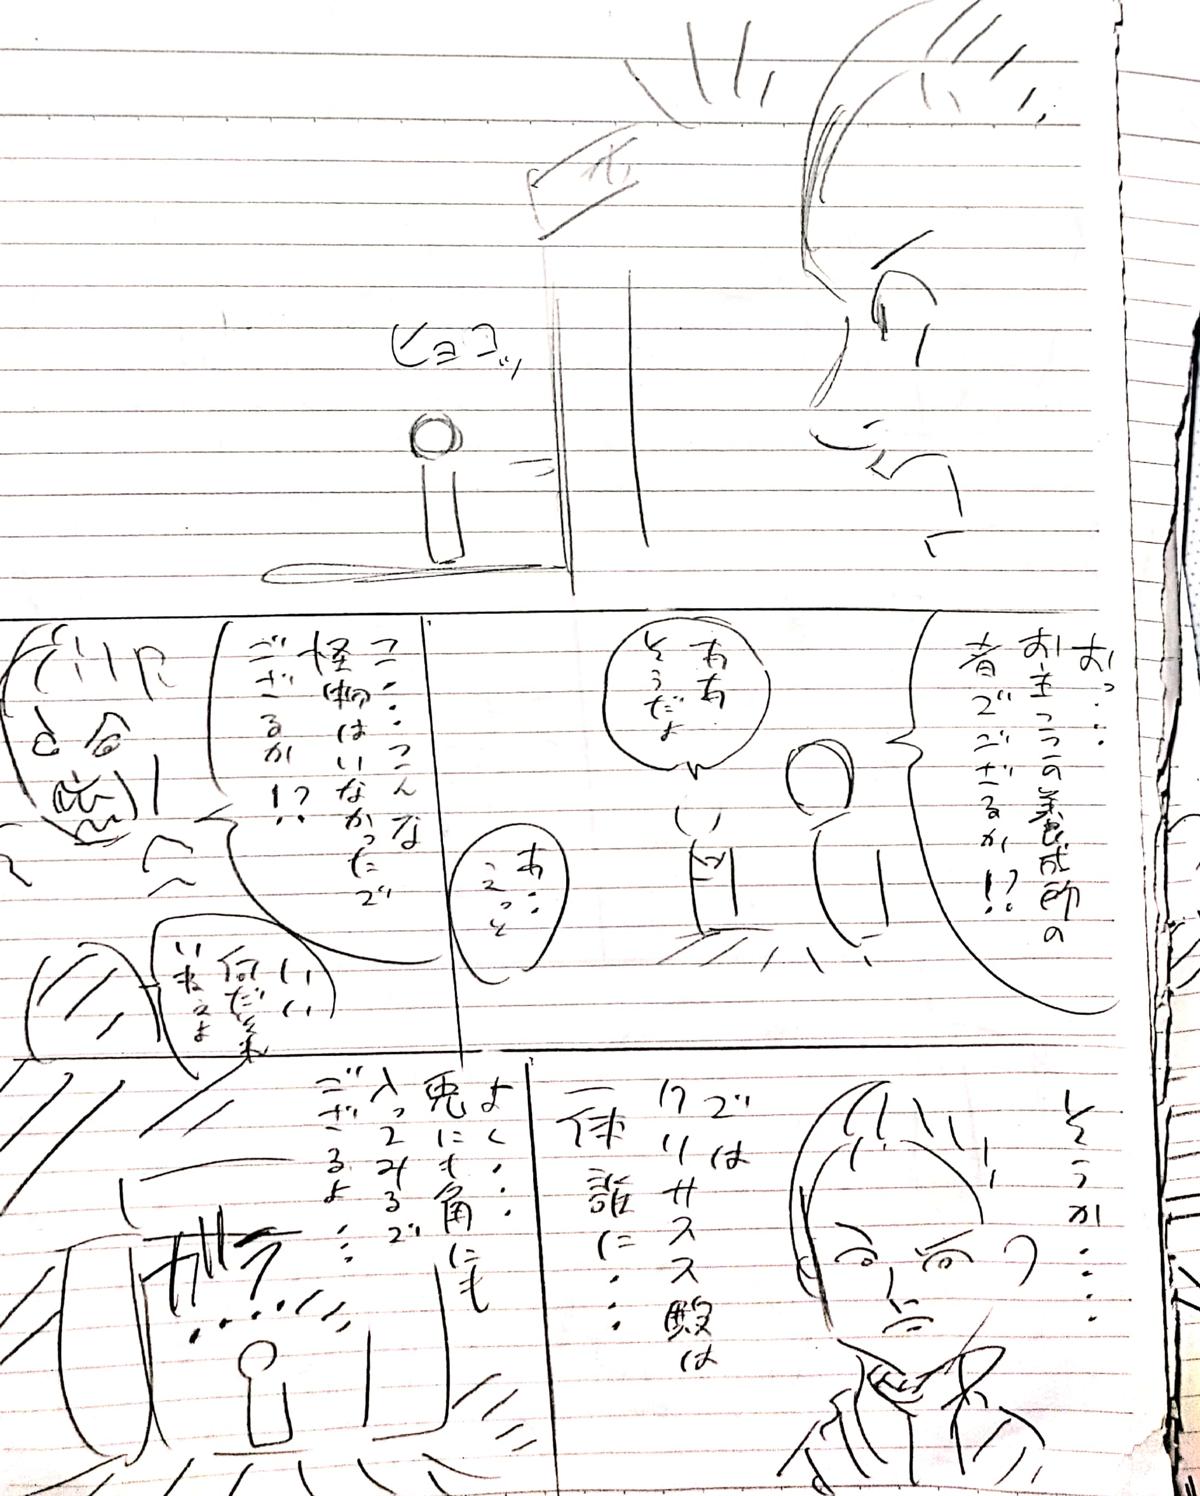 ヒョコッ
おっ…
お主ここの養成所の
者でござるか!?
ああ
そうだよ
あ…
えっと
こ…こんな
怪物はいなかったで
ござるか!?
いい
何だ
いねえよ
そうか……
では
クリサスス殿は
一体誰に…
よく…
兎にも角にも
入ってみるで
ござるよ…
ガラ…